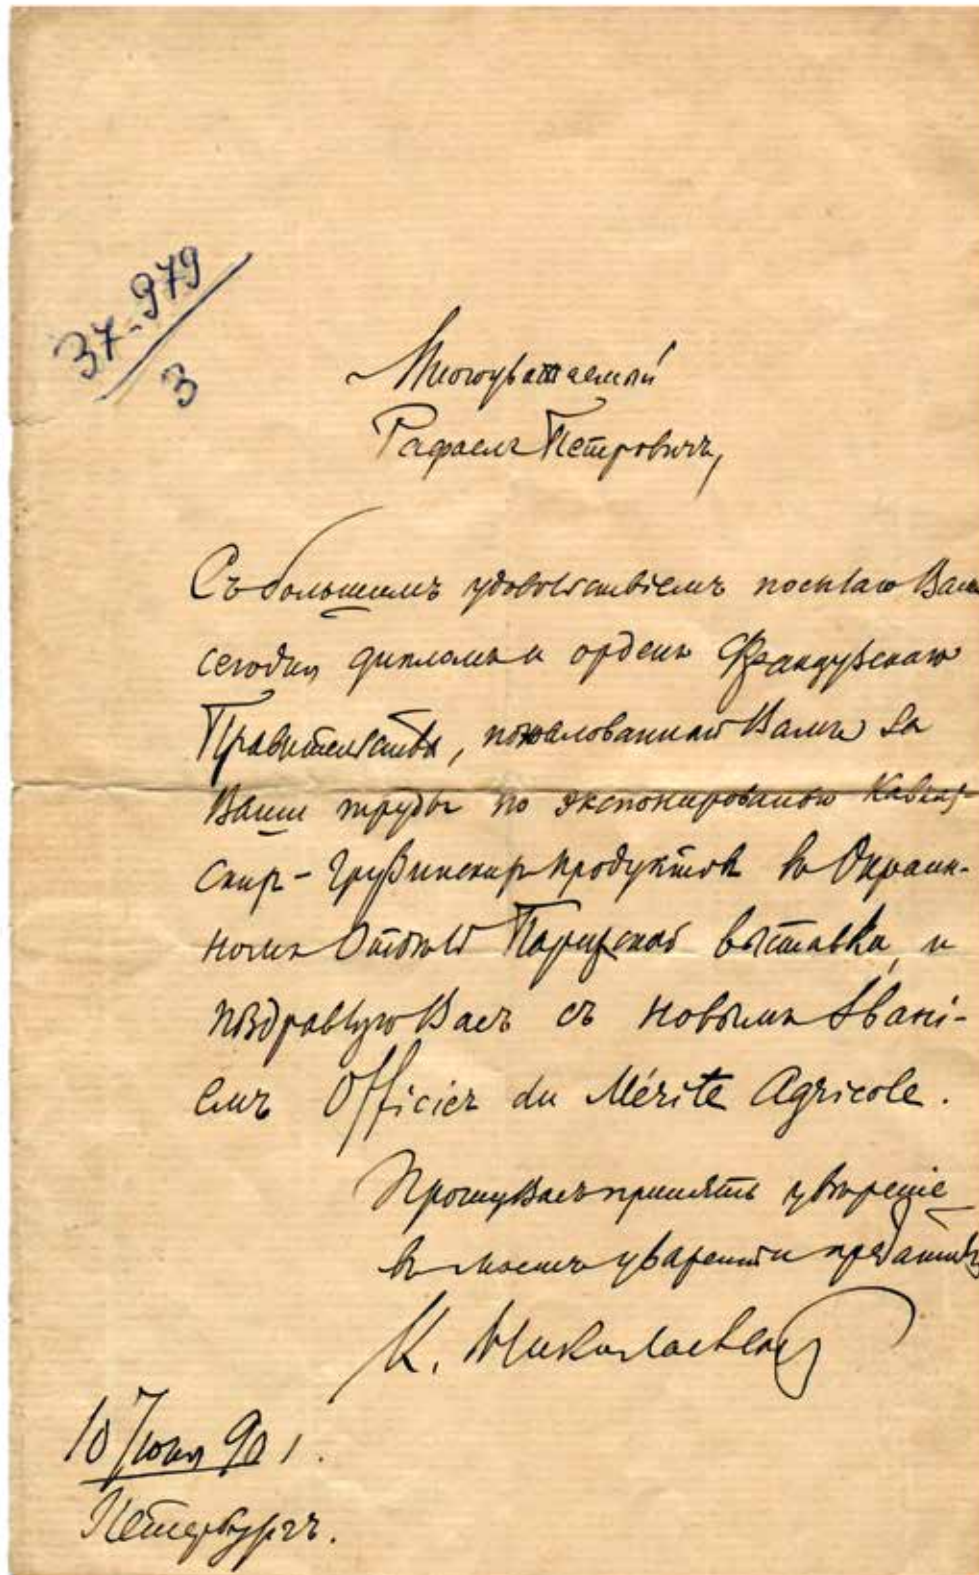 37-979
3
Многоуважаемый
Рафаелъ Петровичъ,
Съ большимъ удовольствіемъ посылаю Вамъ
сегодня дипломъ и орденъ Французскаго
Правительства, пожалованный Вамъ за
Ваши труды по экспонированію Кавказ-
скихъ - Грузинскихъ продуктовъ въ Окраин-
номъ Отдѣлѣ Парижской выставки, и
поздравляю Васъ съ новымъ звані-
емъ Officier du Mérite Agricole.
Прошу Васъ принять увѣреніе
въ моемъ уваженіи и преданности
К.
10 901.
Петербургъ.